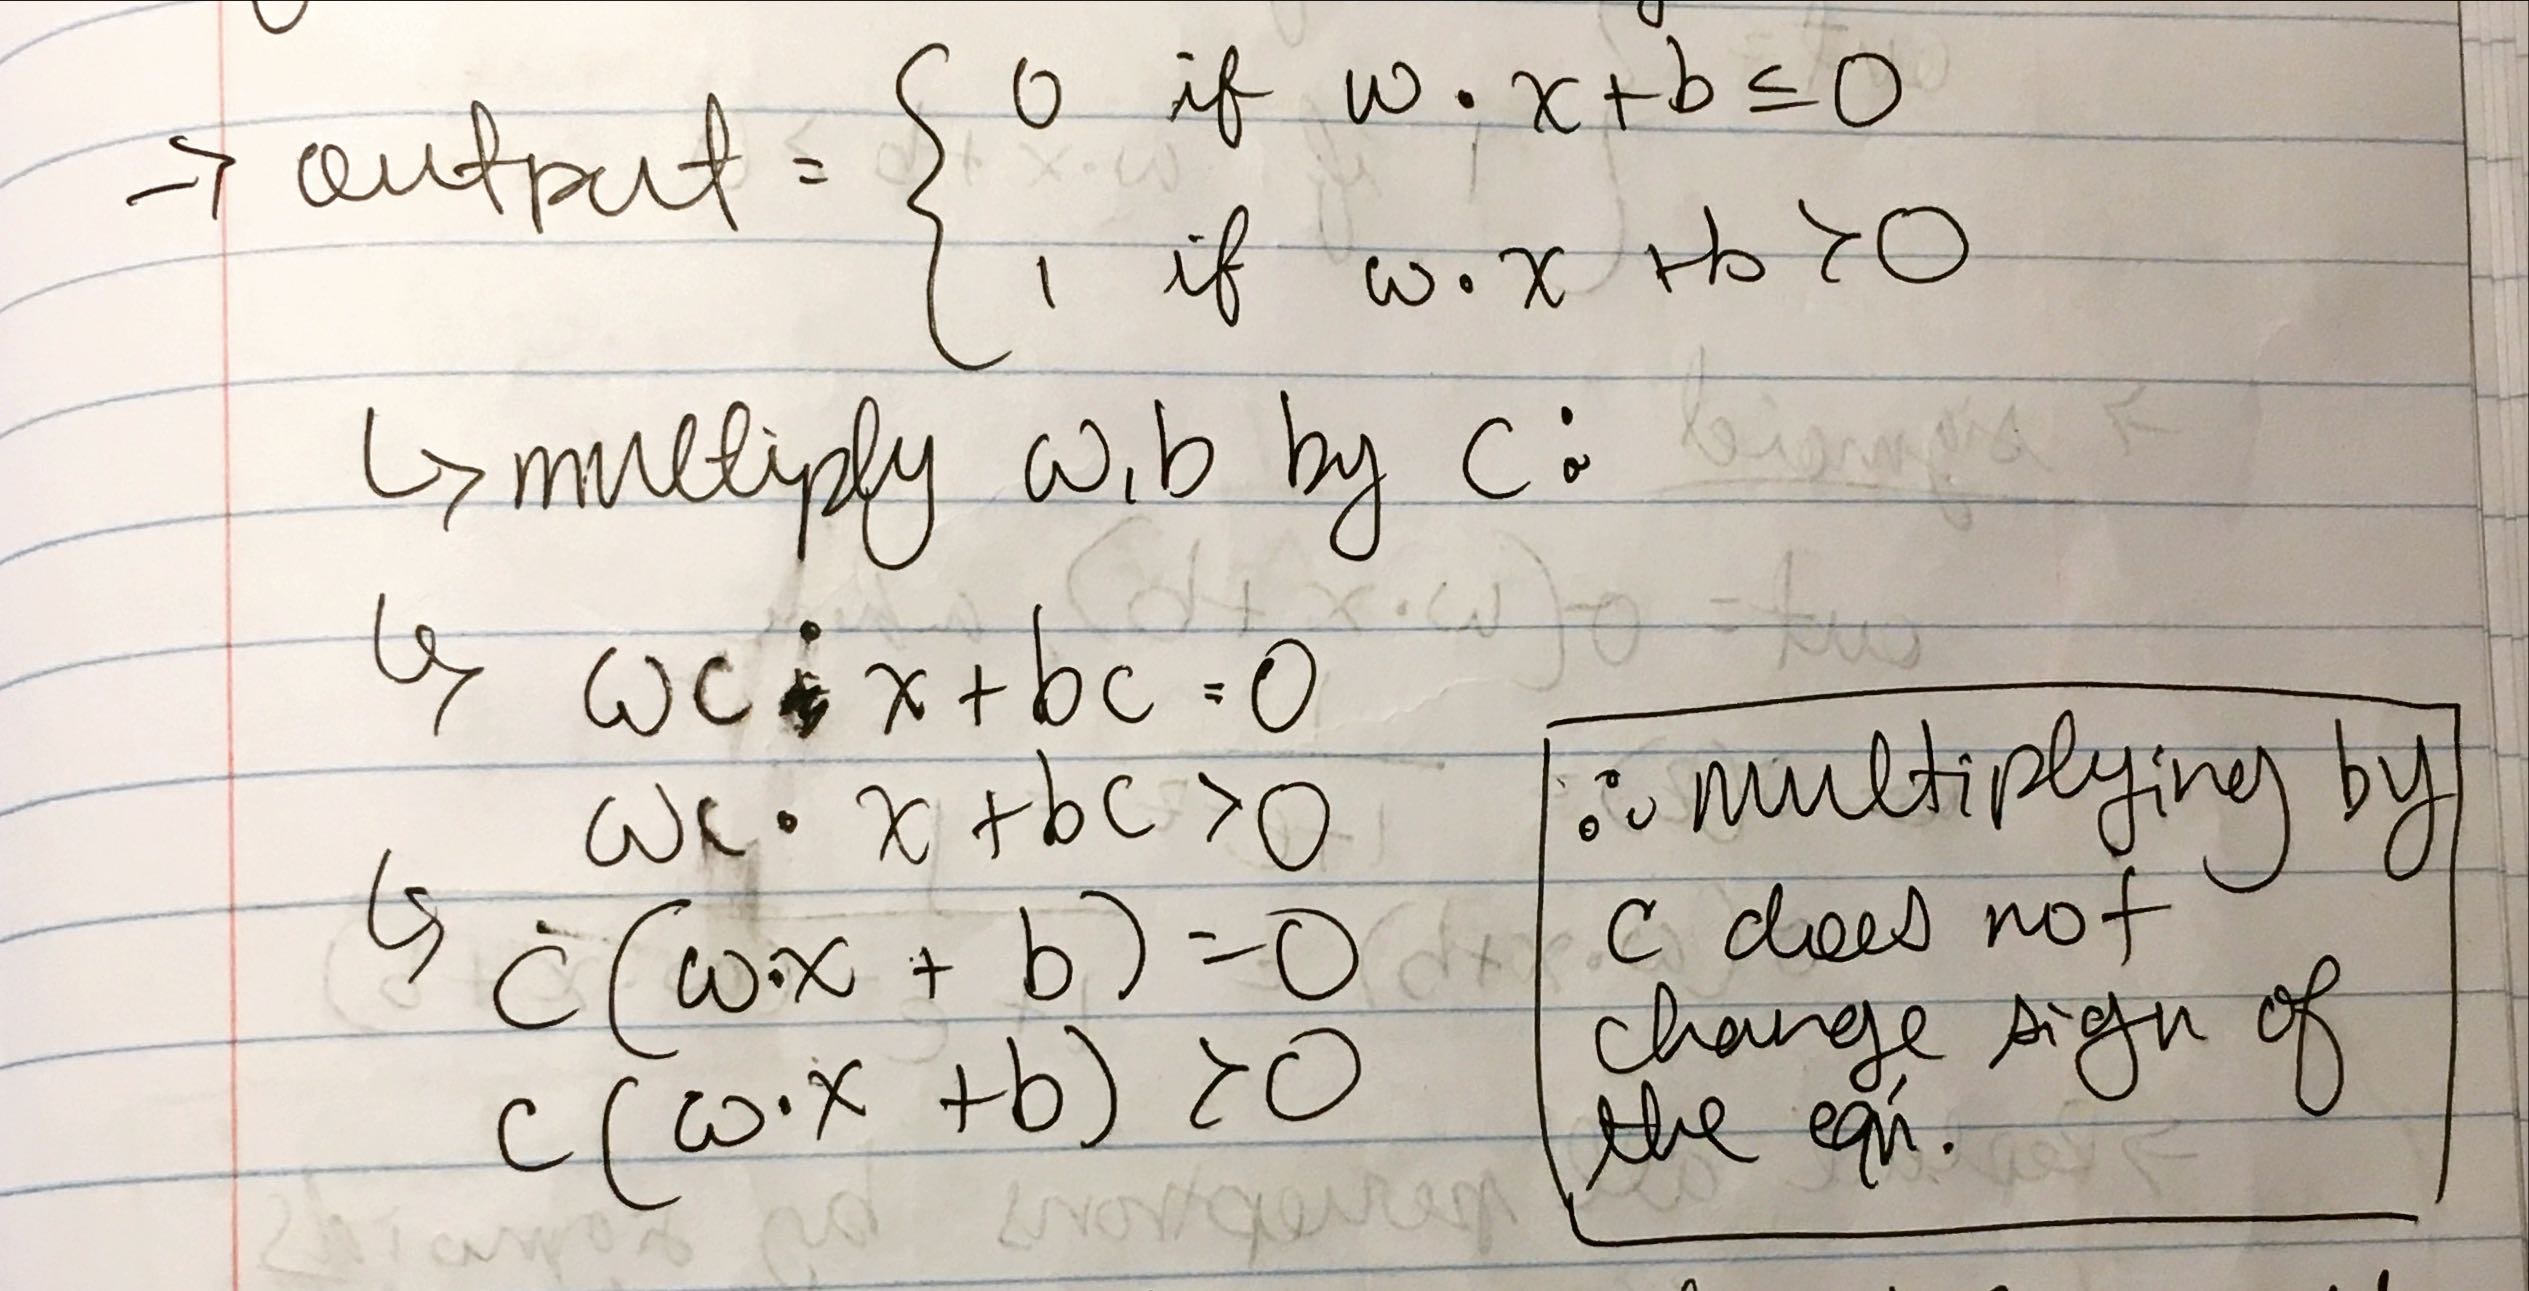 → output = { 0 if w · x + b ≤ 0
1 if w · x + b > 0
↳ multiply w, b by c :
↳ wc · x + bc = 0
wc · x + bc > 0
↳ c (w · x + b) = 0
c (w · x + b) > 0
∴ multiplying by
c does not
change sign of
the eqn.